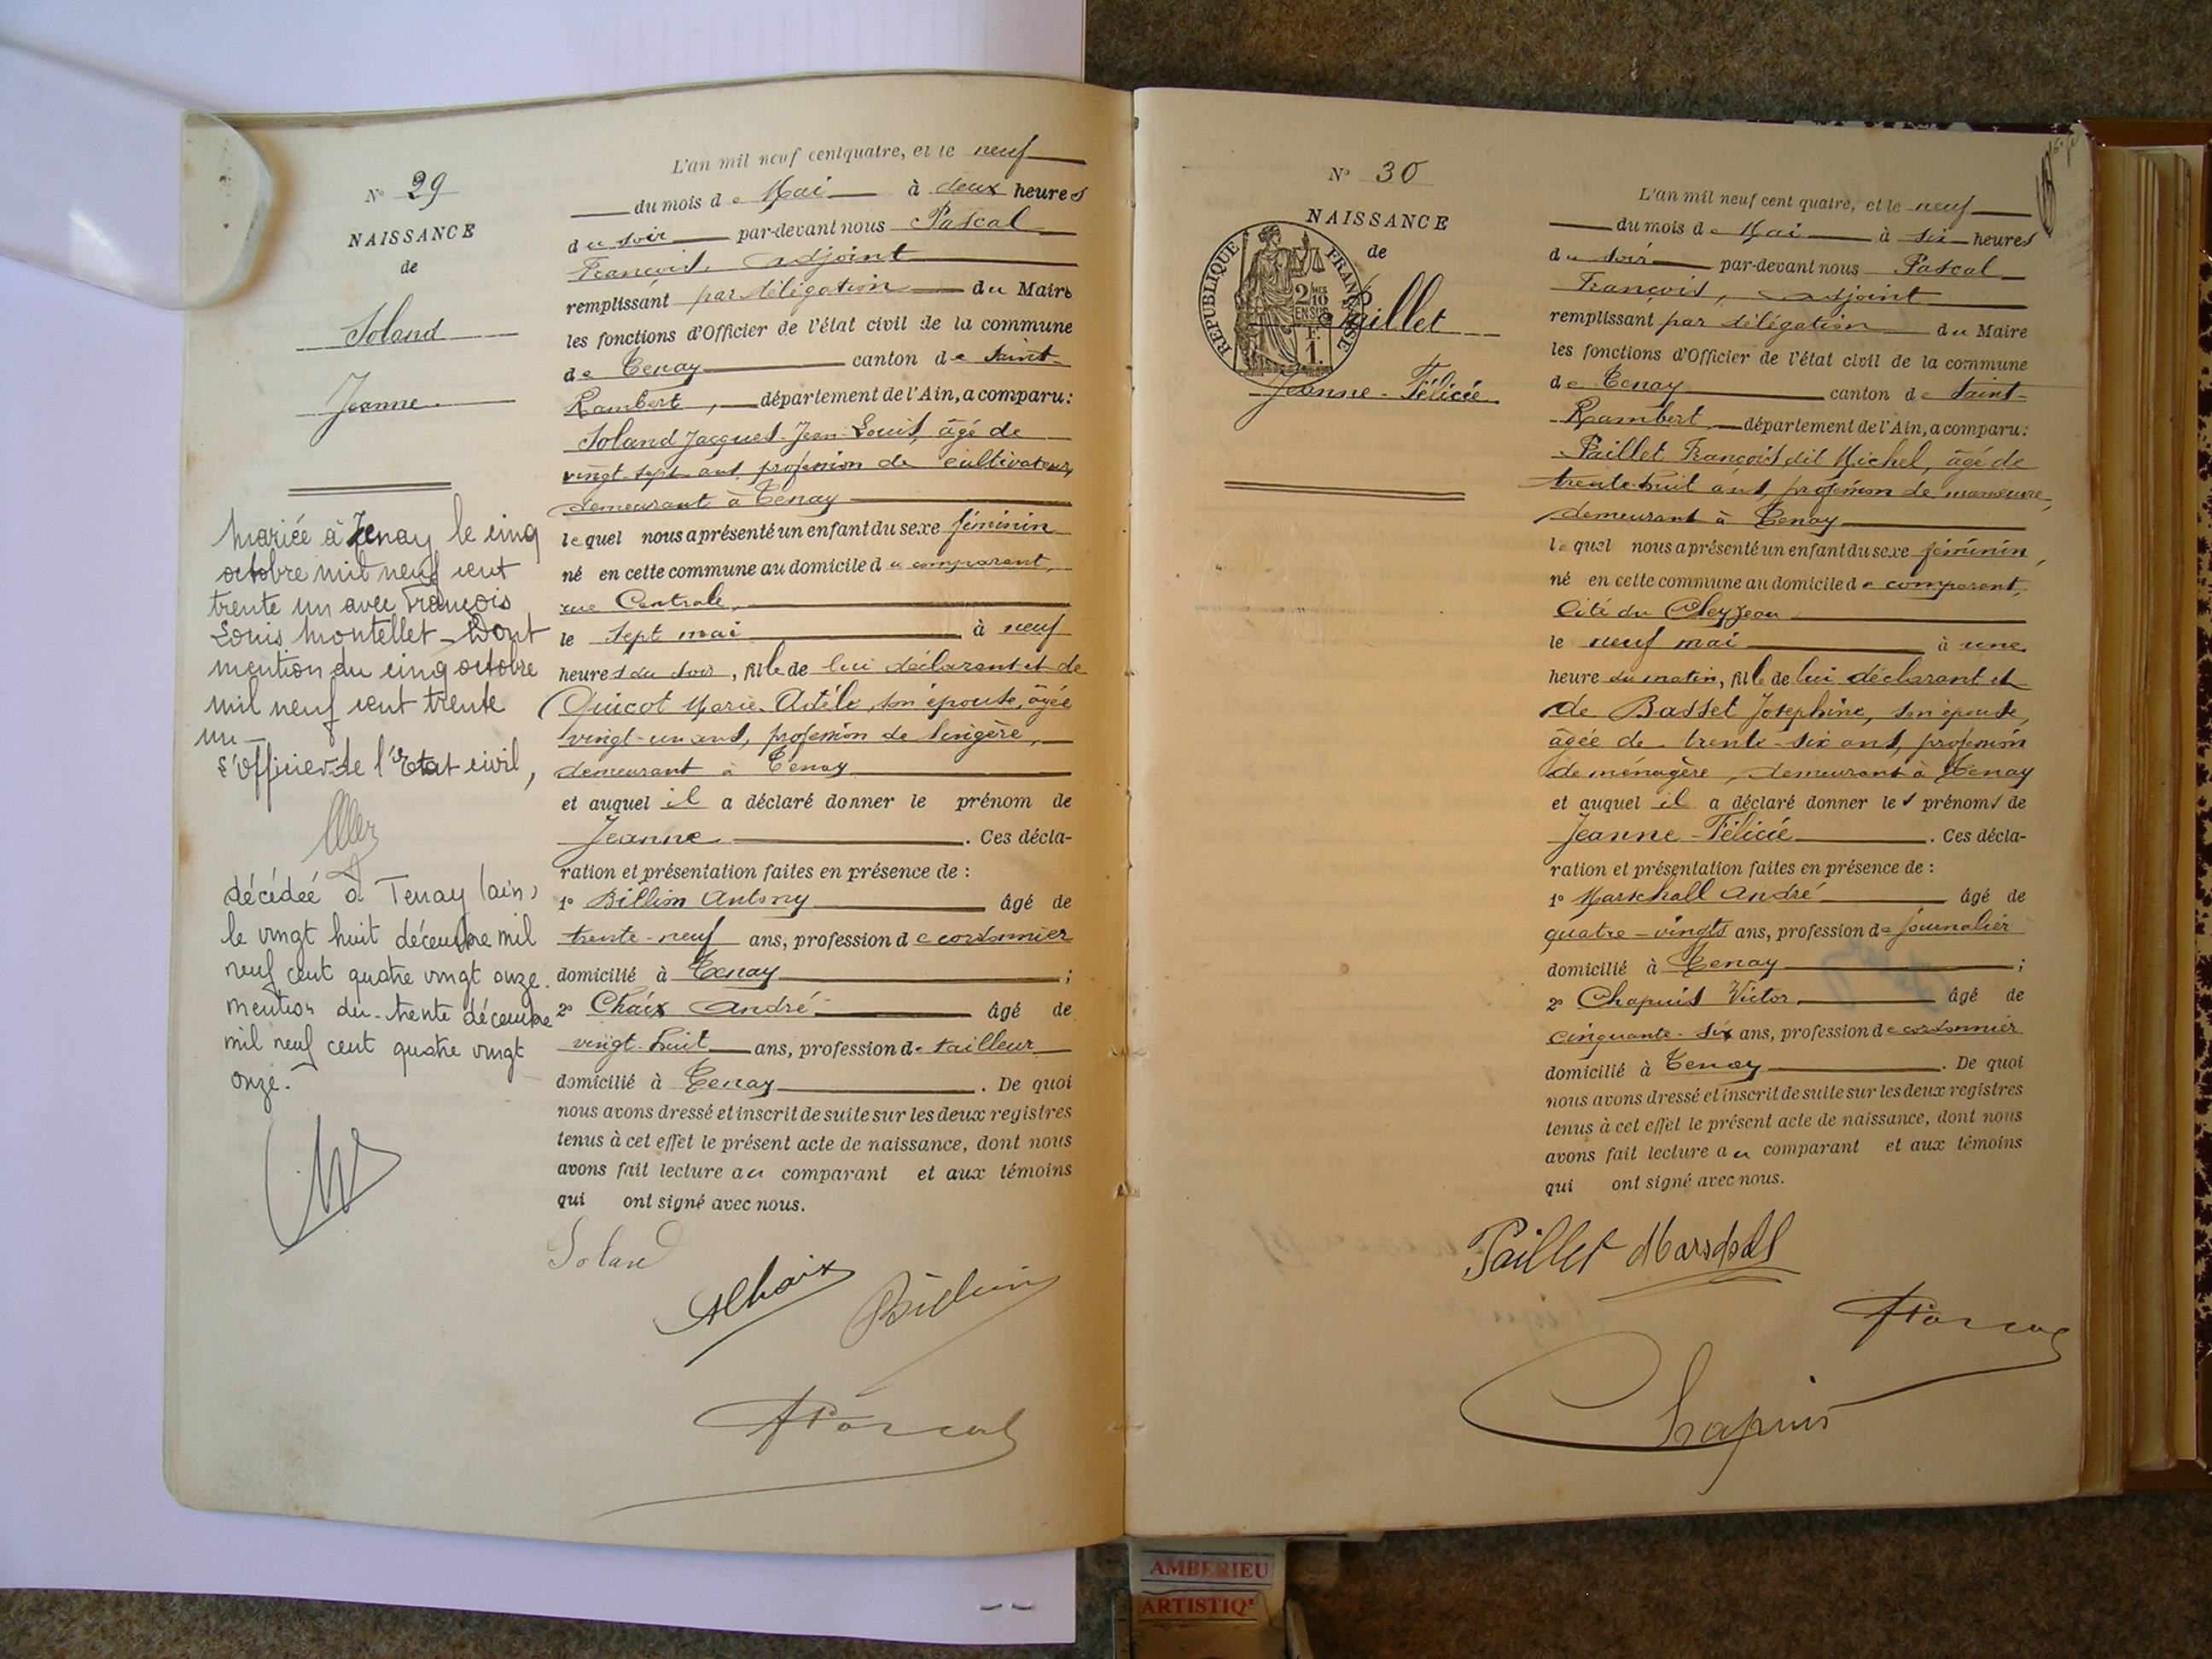 N° 29
NAISSANCE
de
Soland
Jeanne
mariée à Tenay le cinq
octobre mil neuf cent
trente un avec François
Louis Montellet - Dont
mention du cinq octobre
mil neuf cent trente
un -
L'officier de l'Etat civil,
décédée à Tenay (ain)
le vingt huit décembre mil
neuf cent quatre vingt onze.
mention du trente décembre
mil neuf cent quatre vingt
onze.
L'an mil neuf cent quatre, et le neuf
du mois de Mai à deux heures
du soir par-devant nous Pascal
François, adjoint
remplissant par délégation du Maire
les fonctions d'Officier de l'état civil de la commune
de Tenay canton de Saint-
Rambert, département de l'Ain, a comparu:
Soland Jacques-Jean-Louis, âgé de
vingt-sept ans, profession de cultivateur,
demeurant à Tenay
lequel nous a présenté un enfant du sexe féminin
né en cette commune au domicile du comparant,
rue Centrale,
le sept mai à neuf
heures du soir, fille de lui déclarant et de
Quicot Marie-Adèle, son épouse, âgée
vingt-un ans, profession de lingère,
demeurant à Tenay
et auquel il a déclaré donner le prénom de
Jeanne. Ces décla-
ration et présentation faites en présence de :
1° Billion Antony âgé de
trente-neuf ans, profession de cordonnier
domicilié à Tenay ;
2° Chaix André âgé de
vingt-huit ans, profession de tailleur
domicilié à Tenay. De quoi
nous avons dressé et inscrit de suite sur les deux registres
tenus à cet effet le présent acte de naissance, dont nous
avons fait lecture au comparant et aux témoins
qui ont signé avec nous.
Soland
AChaix Billion
FPascal
N° 30
NAISSANCE
de
REPUBLIQUE FRANÇAISE
2/10 EN SUS
F. 1.
Paillet
Jeanne-Félicie
L'an mil neuf cent quatre, et le neuf
du mois de Mai à six heures
du soir par-devant nous Pascal
François, adjoint
remplissant par délégation du Maire
les fonctions d'Officier de l'état civil de la commune
de Tenay canton de Saint-
Rambert, département de l'Ain, a comparu:
Paillet François dit Michel, âgé de
trente-huit ans, profession de manoeuvre,
demeurant à Tenay
lequel nous a présenté un enfant du sexe féminin,
né en cette commune au domicile du comparant,
Cité du
le neuf mai à une
heure du matin, fille de lui déclarant et
de Basset Josephine, son épouse,
âgée de trente-six ans, profession
de ménagère, demeurant à Tenay
et auquel il a déclaré donner les prénoms de
Jeanne-Félicie. Ces décla-
ration et présentation faites en présence de :
1° Marschall André âgé de
quatre-vingts ans, profession de journalier
domicilié à Tenay ;
2° Chapuis Victor âgé de
cinquante-six ans, profession de cordonnier
domicilié à Tenay. De quoi
nous avons dressé et inscrit de suite sur les deux registres
tenus à cet effet le présent acte de naissance, dont nous
avons fait lecture au comparant et aux témoins
qui ont signé avec nous.
Paillet Marschall
FPascal
Chapuis
AMBERIEU
ARTISTIQ'